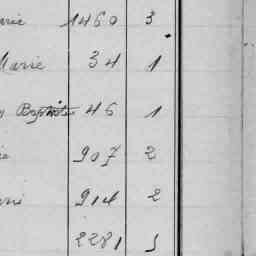 arie 1460 3
Marie 34 1
Baptiste 46 1
907 2
914 2
2281